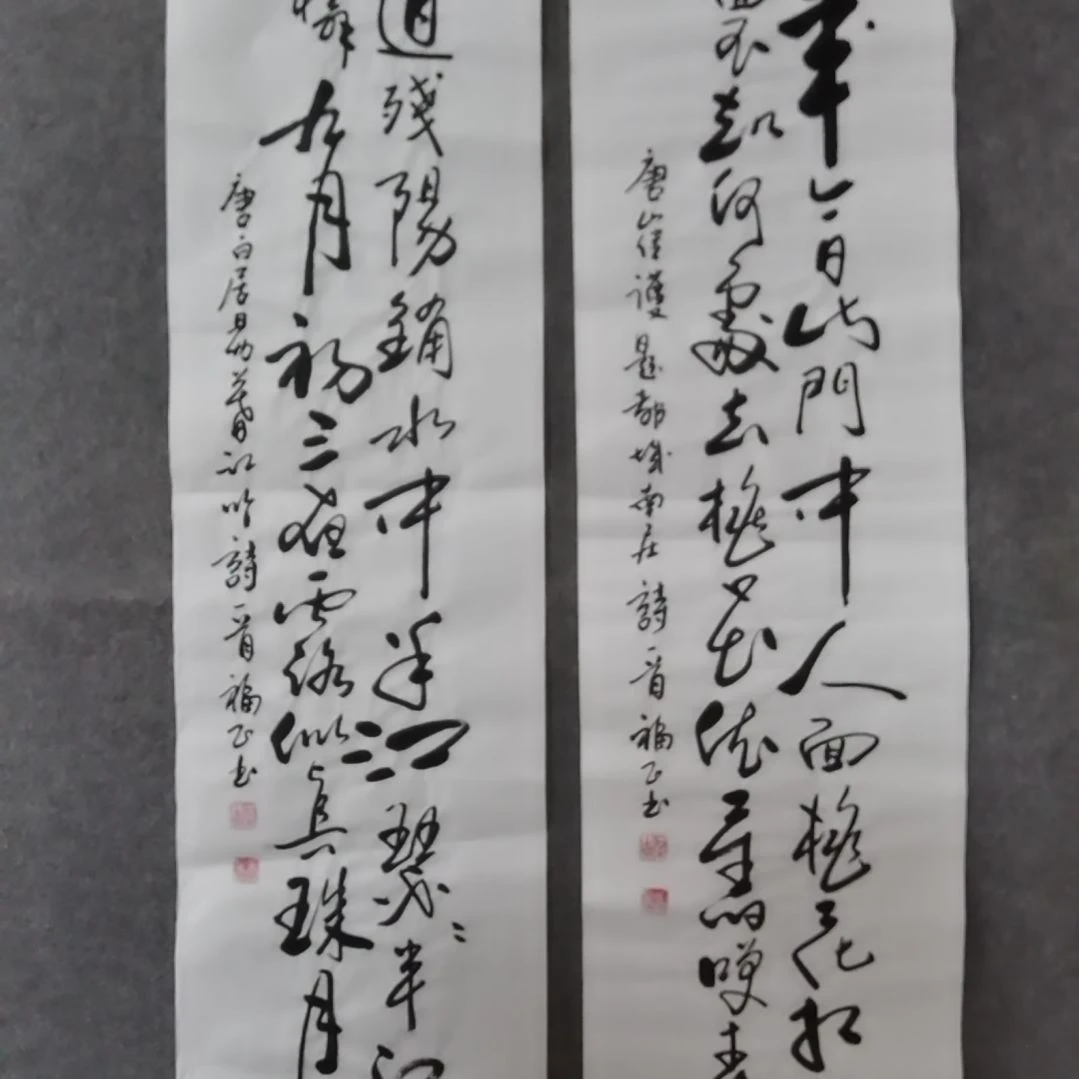 年今日此門中人面桃花相
面不知何處去桃花依舊咲春
唐崔護題都城南庄詩一首福正书
道殘陽鋪水中半江瑟々半江
憐九月初三夜露似真珠月
唐白居易暮江吟詩一首福正书